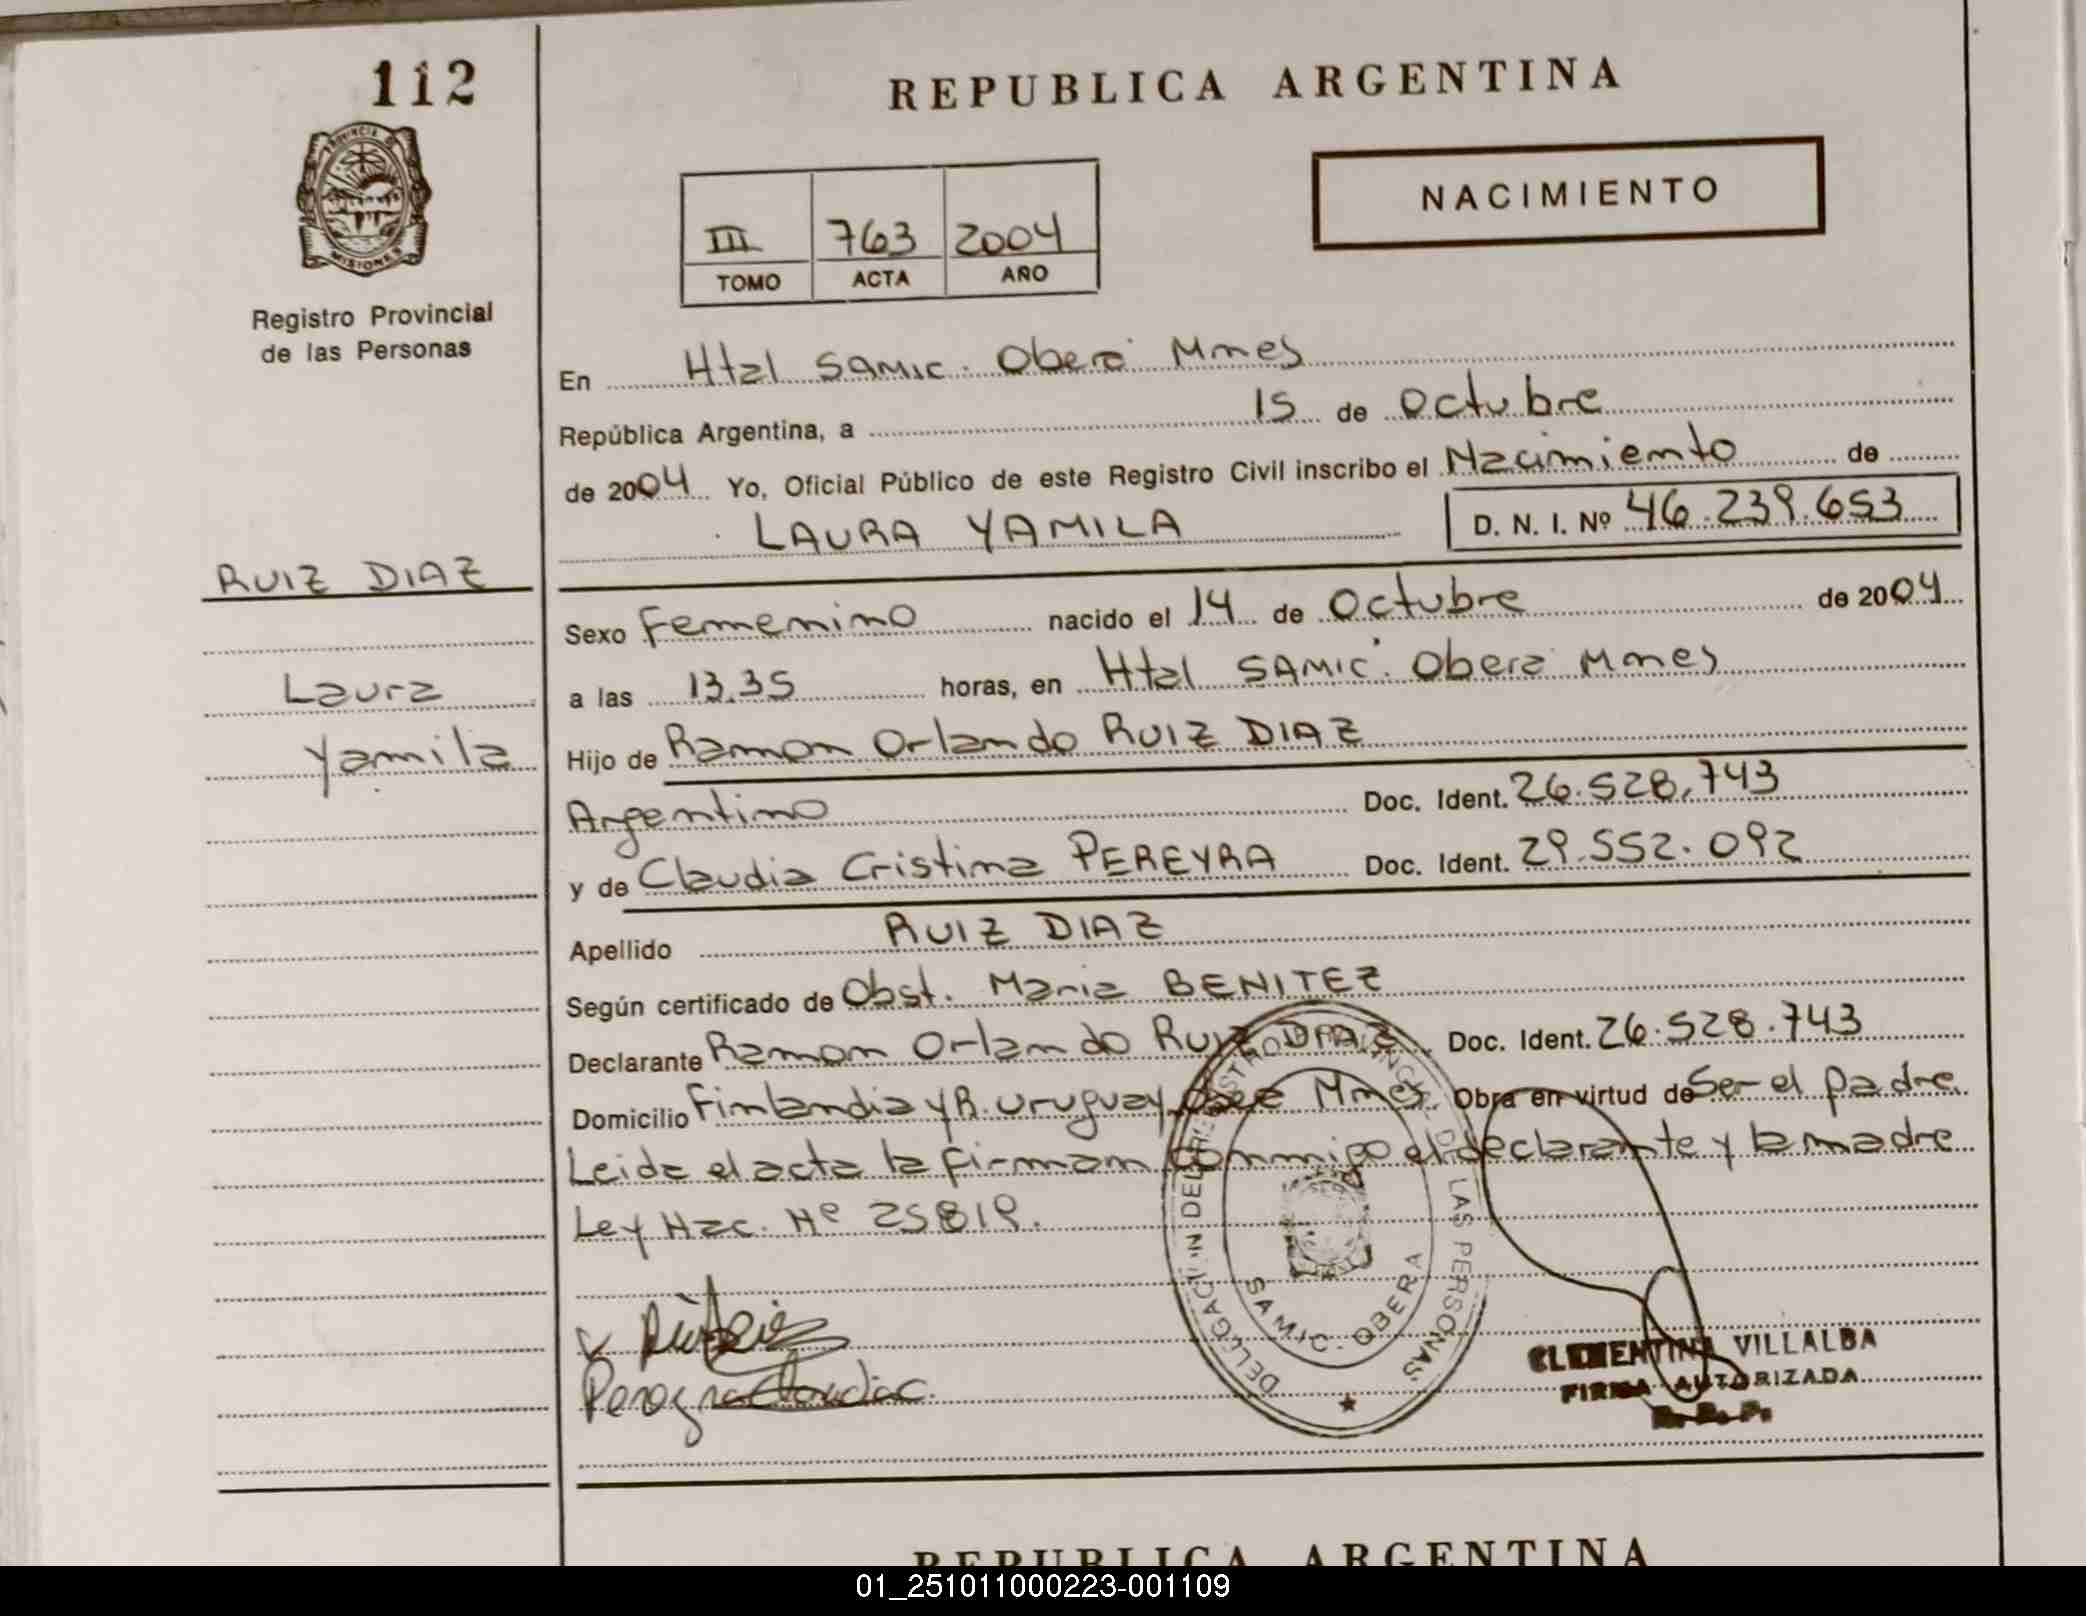 112
REPUBLICA ARGENTINA
PROVINCIA DE
MISIONES
Registro Provincial
de las Personas
III 763 2004
TOMO ACTA AÑO
NACIMIENTO
En Htal SAMIC. Oberá Mnes
República Argentina, a 15 de Octubre
de 2004 Yo, Oficial Público de este Registro Civil inscribo el Nacimiento de
LAURA YAMILA D. N. I. Nº 46.239.653
RUIZ DIAZ
Laura
Yamila
Sexo Femenino nacido el 14 de Octubre de 2004
a las 13.35 horas, en Htal SAMIC. Oberá Mnes
Hijo de Ramon Orlando RUIZ DIAZ
Argentino Doc. Ident. 26.528.743
y de Claudia Cristina PEREYRA Doc. Ident. 29.552.092
Apellido RUIZ DIAZ
Según certificado de Obst. Maria BENITEZ
Declarante Ramon Orlando RUIZ DIAZ Doc. Ident. 26.528.743
Domicilio Finlandia y R. Uruguay Mnes. Obra en virtud de Ser el padre.
Leida el acta la firman conmigo el declarante y la madre
Ley Nac. Nº 25819.
DELEGACION DEL REGISTRO PROVINCIAL DE LAS PERSONAS
SAMIC - OBERA
CLEMENTINA VILLALBA
FIRMA AUTORIZADA
R. P. P.
REPUBLICA ARGENTINA
01_251011000223-001109